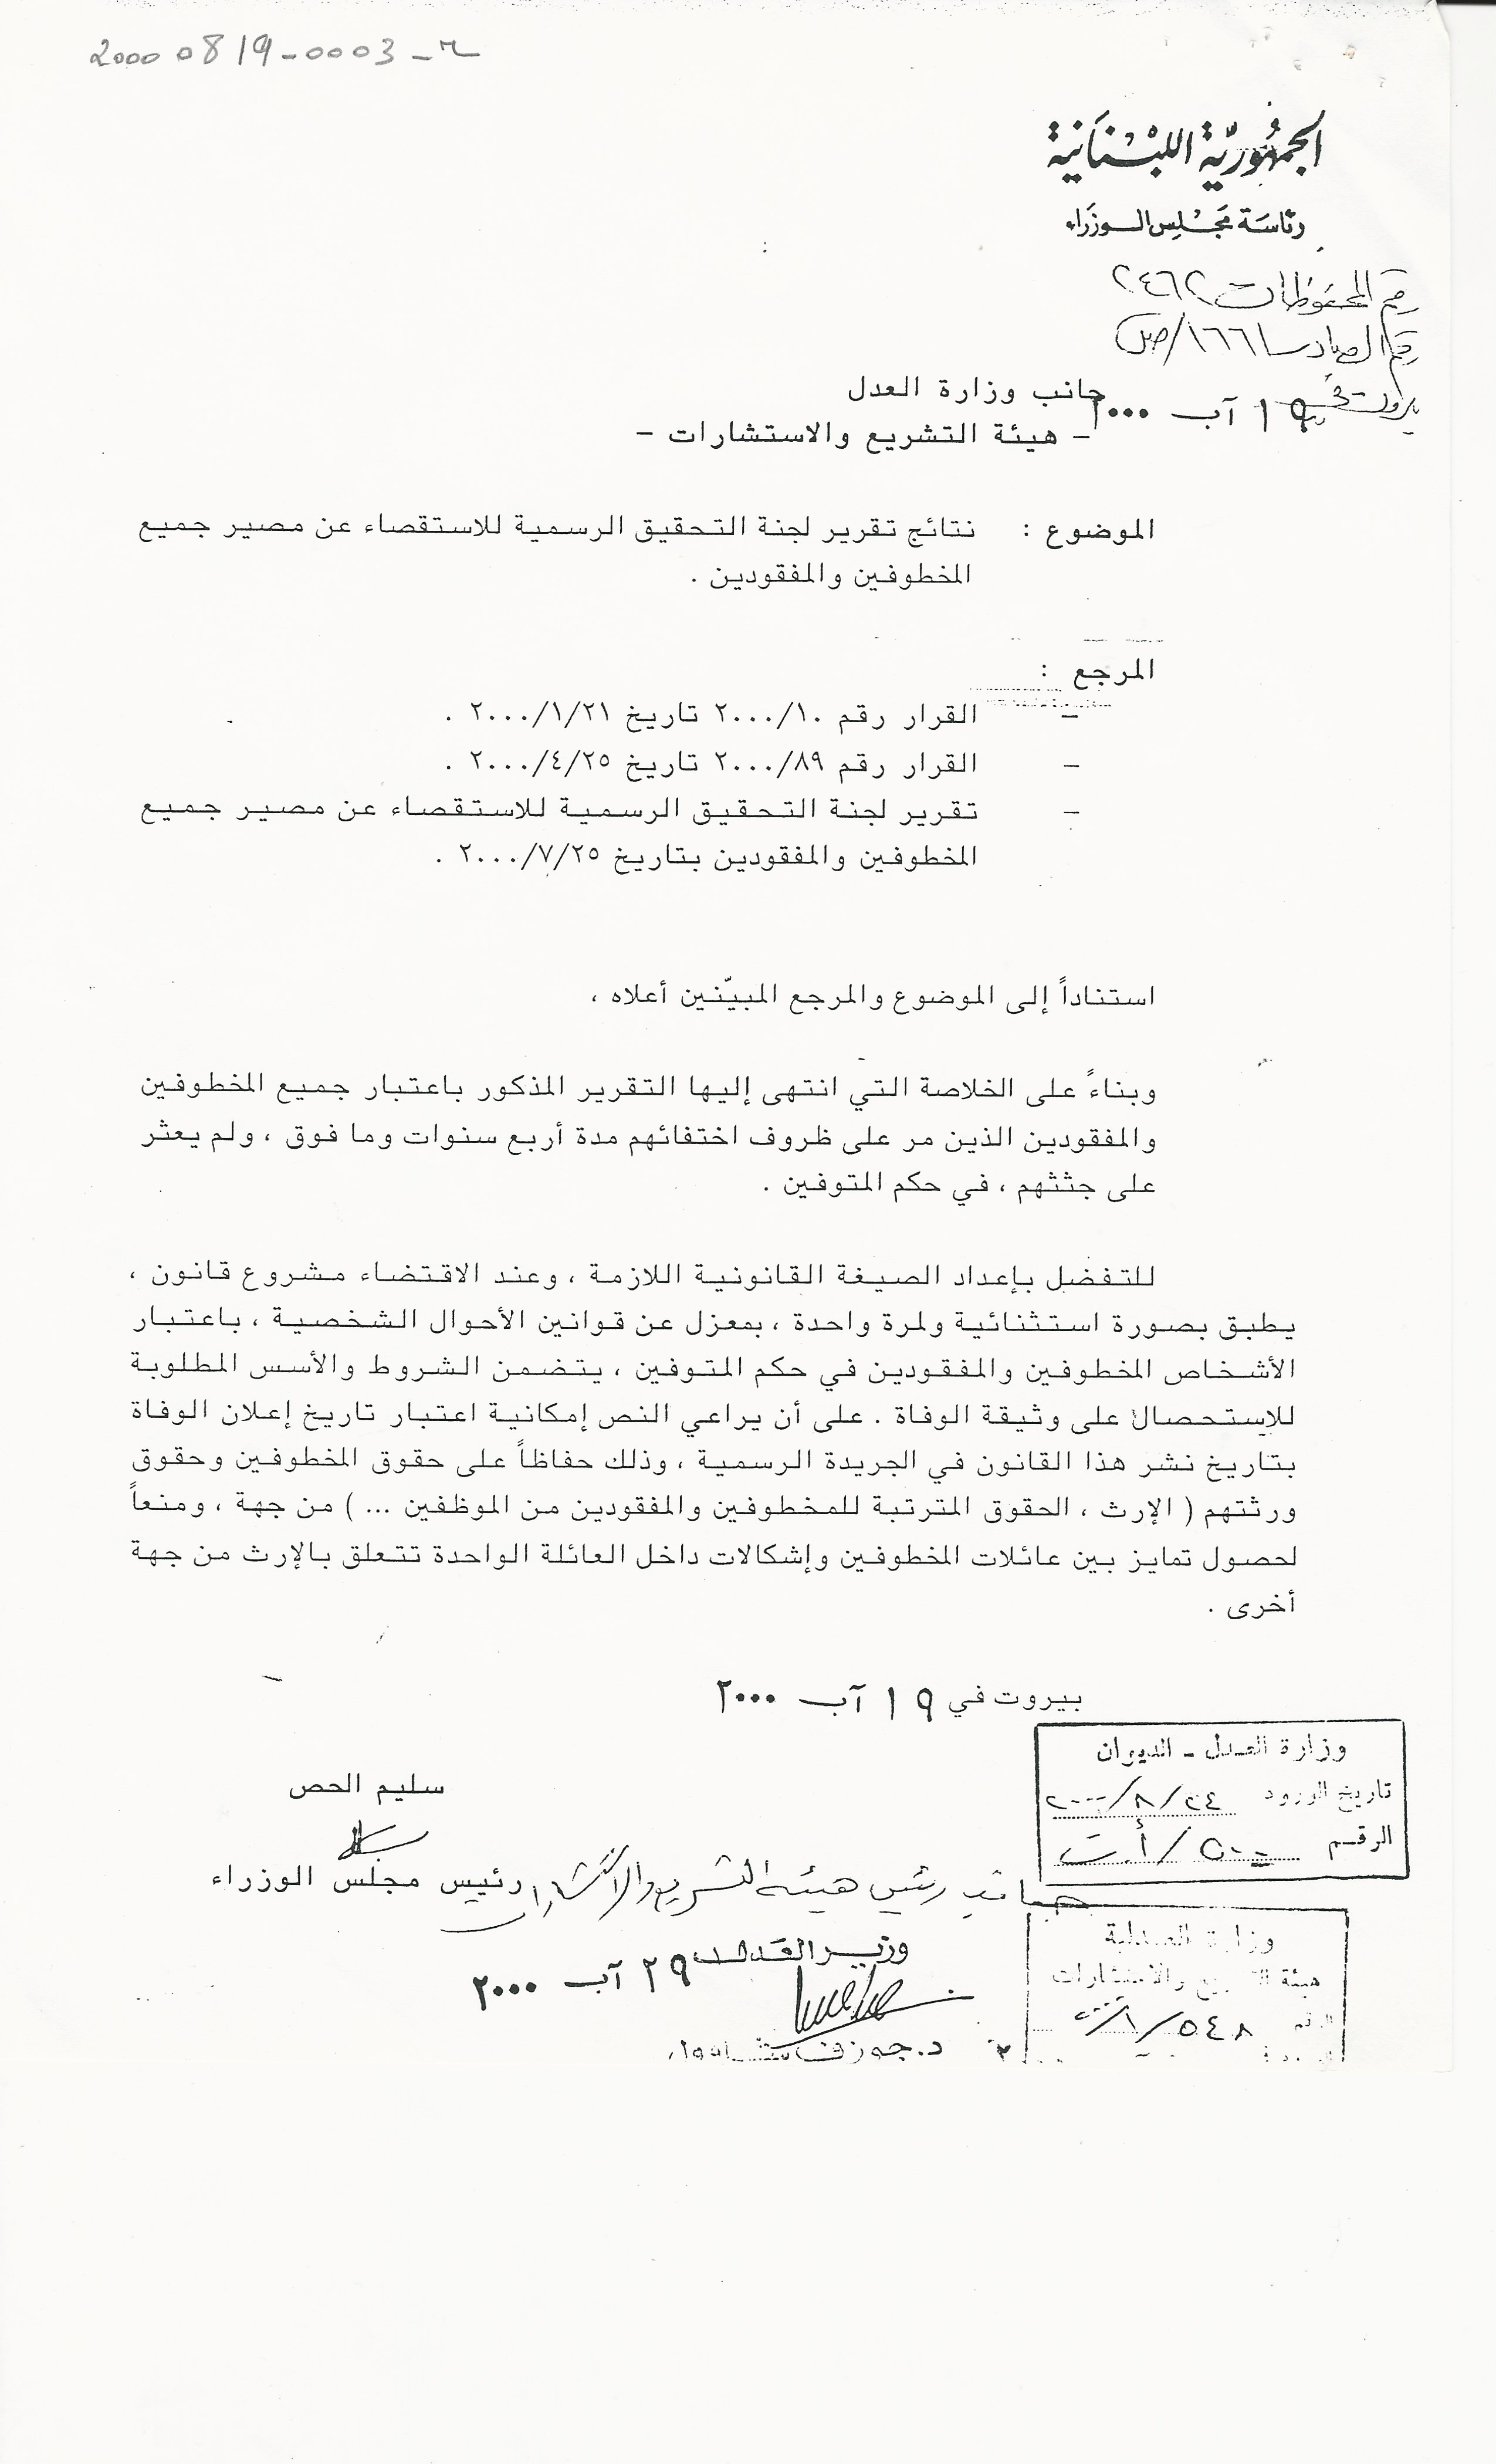 20000819-0003-
الجمهورية اللبنانية
رئاسة مجلس الوزراء
رقم المحفوظات ٢٤٦٢
رقم الصادر ١٦٦١/ص
بيروت في ١٩ آب ٢٠٠٠
جانب وزارة العدل
- هيئة التشريع والاستشارات -
الموضوع : نتائج تقرير لجنة التحقيق الرسمية للاستقصاء عن مصير جميع
المخطوفين والمفقودين .
المرجع :
- القرار رقم ٢٠٠٠/١٠ تاريخ ٢٠٠٠/١/٢١ .
- القرار رقم ٢٠٠٠/٨٩ تاريخ ٢٠٠٠/٤/٢٥ .
- تقرير لجنة التحقيق الرسمية للاستقصاء عن مصير جميع
المخطوفين والمفقودين بتاريخ ٢٠٠٠/٧/٢٥ .
استناداً إلى الموضوع والمرجع المبيّنين أعلاه ،
وبناءً على الخلاصة التي انتهى إليها التقرير المذكور باعتبار جميع المخطوفين
والمفقودين الذين مر على ظروف اختفائهم مدة أربع سنوات وما فوق ، ولم يعثر
على جثثهم ، في حكم المتوفين .
للتفضل بإعداد الصيغة القانونية اللازمة ، وعند الاقتضاء مشروع قانون ،
يطبق بصورة استثنائية ولمرة واحدة ، بمعزل عن قوانين الأحوال الشخصية ، باعتبار
الأشخاص المخطوفين والمفقودين في حكم المتوفين ، يتضمن الشروط والأسس المطلوبة
للإستحصال على وثيقة الوفاة . على أن يراعي النص إمكانية اعتبار تاريخ إعلان الوفاة
بتاريخ نشر هذا القانون في الجريدة الرسمية ، وذلك حفاظاً على حقوق المخطوفين وحقوق
ورثتهم ( الإرث ، الحقوق المترتبة للمخطوفين والمفقودين من الموظفين ... ) من جهة ، ومنعاً
لحصول تمايز بين عائلات المخطوفين وإشكالات داخل العائلة الواحدة تتعلق بالإرث من جهة
أخرى .
بيروت في ١٩ آب ٢٠٠٠
وزارة العدل - الديوان
تاريخ الورود ٢٤/٨/٢٠٠٠
الرقم ٥٠٠/أ.ت
سليم الحص
رئيس مجلس الوزراء
جانب رئيس هيئة التشريع والاستشارات
وزير العدل
٢٩ آب ٢٠٠٠
وزارة العدلية
هيئة التشريع والاستشارات
الرقم ٥٤٨/
د. جوزف